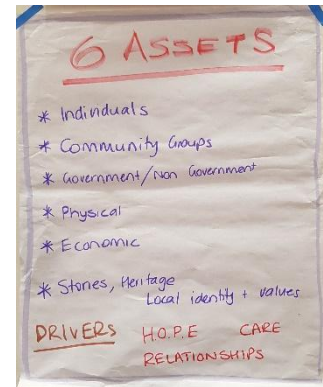 6 ASSETS
* Individuals
* Community Groups
* Government/Non Government
* Physical
* Economic
* Stories, Heritage
Local identity + values
DRIVERS H.O.P.E CARE
RELATIONSHIPS